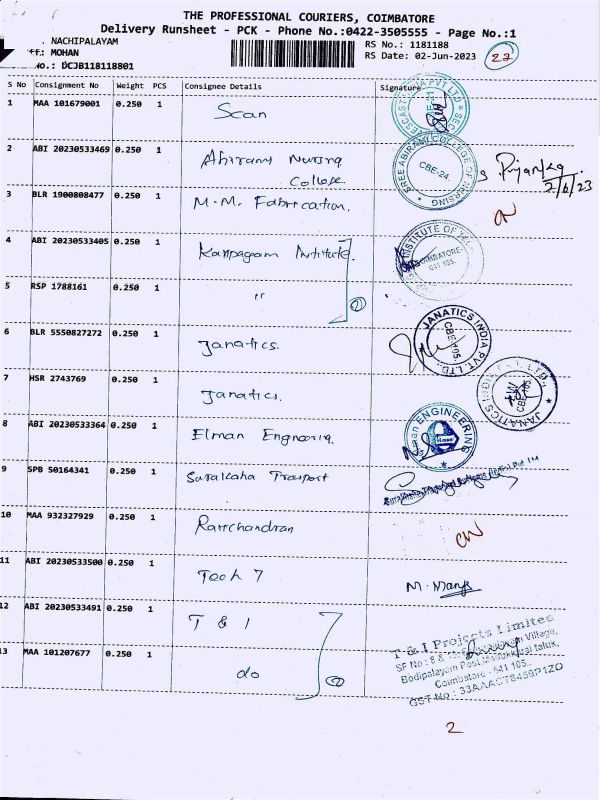 THE PROFESSIONAL COURIERS, COIMBATORE
Delivery Runsheet - PCK - Phone No.:0422-3505555 - Page No.:1
NACHIPALAYAM
RS No.: 1181188
ff: MOHAN
RS Date: 02-Jun-2023
22
No.: DCJB118118801
S No Consignment No Weight PCS Consignee Details Signature
1 MAA 101679001 0.250 1 Scan
2 ABI 20230533469 0.250 1 Abirami Nursing
College
SREE ABIRAMI COLLEGE OF NURSING
CBE-24.
Priyanka
2/6/23
3 BLR 1900808477 0.250 1 M.M. Fabrication.
4 ABI 20230533405 0.250 1 Karpagam Institute.
INSTITUTE OF
COIMBATORE-
641 105.
5 RSP 1788161 0.250 1 "
2
6 BLR 5550827272 0.250 1 Janatics.
JANATICS INDIA PVT. LTD.
CBE-105.
7 HSR 2743769 0.250 1 Janatics.
JANATICS INDIA PVT. LTD.
CBE-105.
8 ABI 20230533364 0.250 1 Elman Engneering.
Elman ENGINEERING
9 SPB 50164341 0.250 1 Suraksha Trasport
10 MAA 932327929 0.250 1 Ramchandran
11 ABI 20230533500 0.250 1 Tech 7
M. Manoj
12 ABI 20230533491 0.250 1 T & I
T & I Projects Limited
13 MAA 101207677 0.250 1 do
2
Coimbatore - 641 105.
2